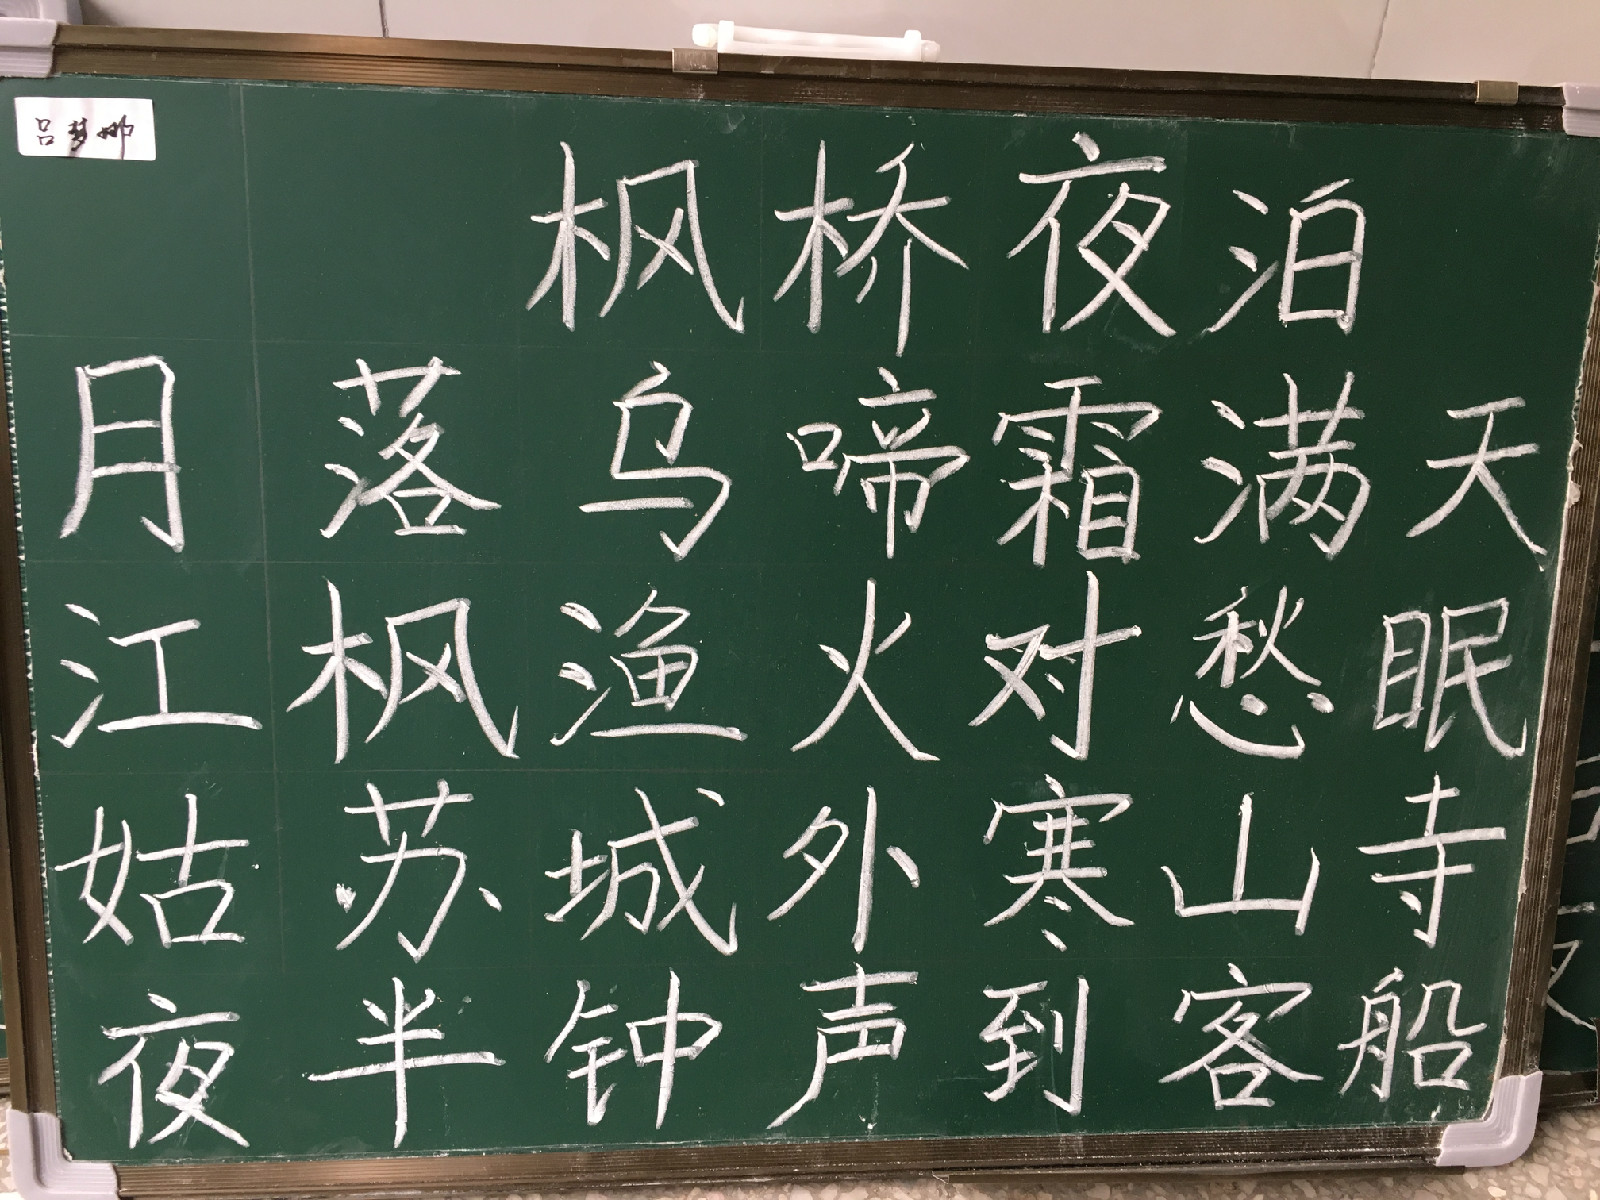 吕梦娜
枫桥夜泊
月落乌啼霜满天
江枫渔火对愁眠
姑苏城外寒山寺
夜半钟声到客船